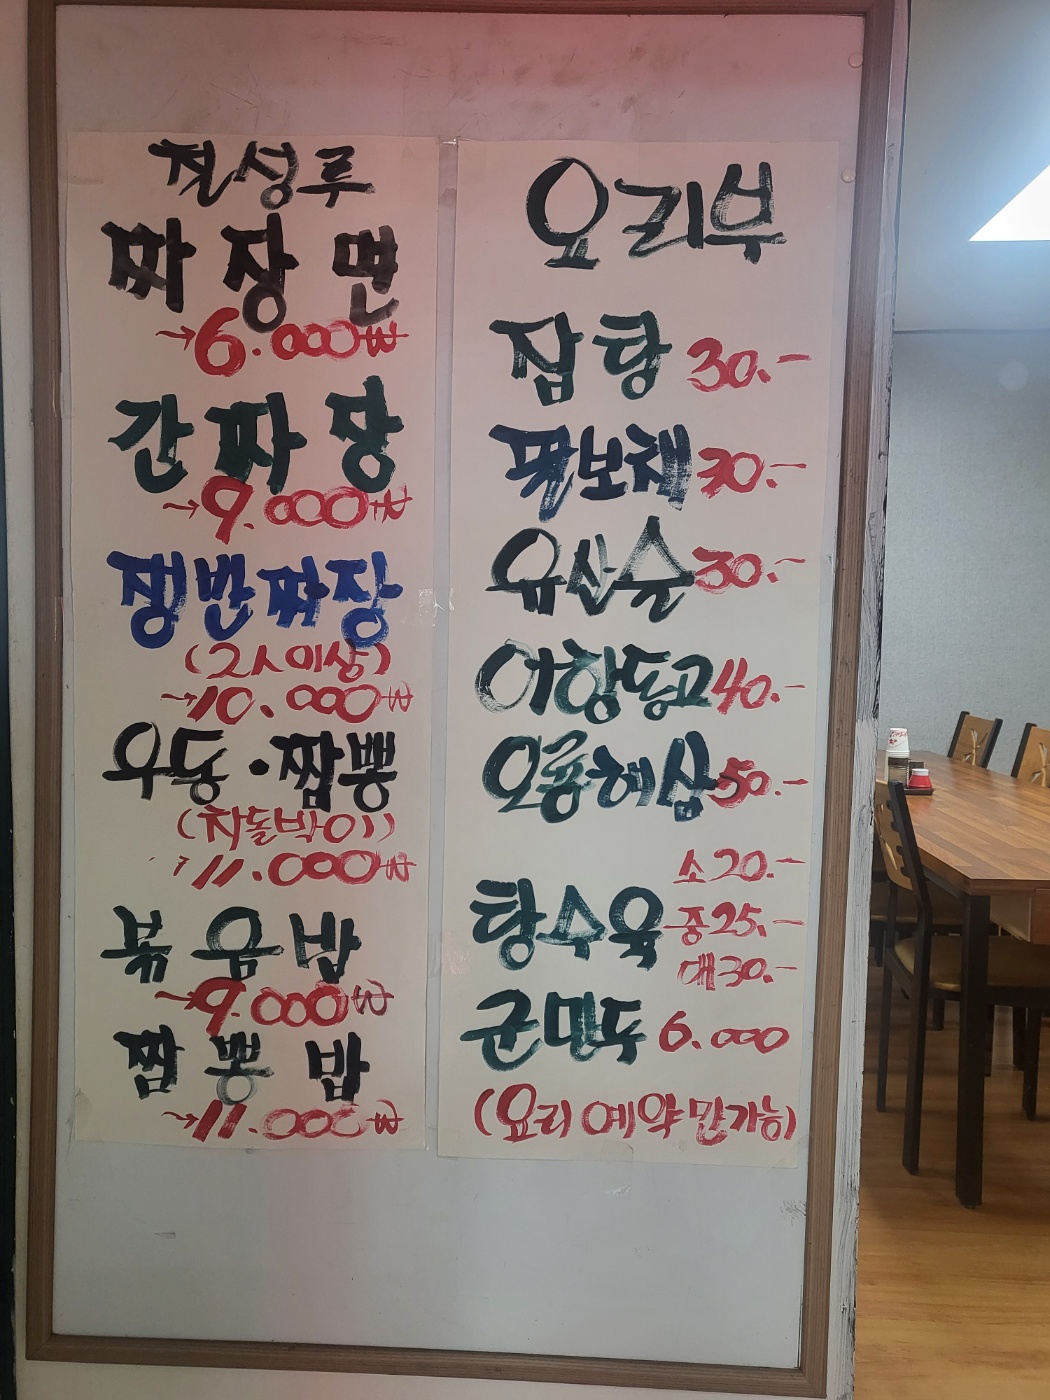 전성루
짜장면
→6.000₩
간짜장
→9.000₩
쟁반짜장
(2人이상)
→10.000₩
우동·짬뽕
(차돌박이)
11.000₩
볶음밥
→9.000₩
짬뽕밥
→11.000₩
요리부
잡탕 30.-
팔보채 30.-
유산슬 30.-
어향동고 40.-
오룡해삼 50.-
소 20.-
탕수육 중 25.-
대 30.-
군만두 6.000
(요리 예약만가능)